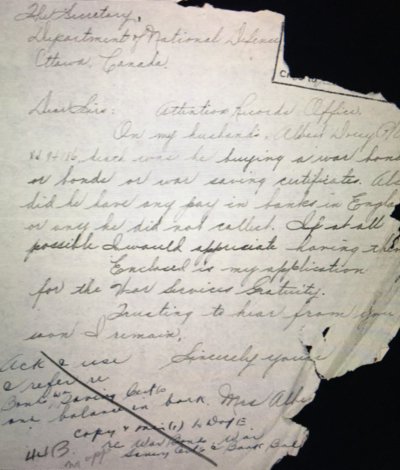 The Secretary,
Department of National Defence
Ottawa, Canada.
Dear Sirs: Attention Records Office.
On my husband's, Albert
was he buying a war bond
or bonds or war saving certificates. Also
did he have any pay in banks in England
or any he did not collect. If at all
possible I would appreciate having them
Enclosed is my application
for the War Services Gratuity.
Trusting to hear from you
soon I remain,
Sincerely yours
Mrs Albe
Ack & use
& refer re
Bonds War Saving Certs
one balance in bank.
copy &
re War Bond, War
Saving Certs & Bank Bal